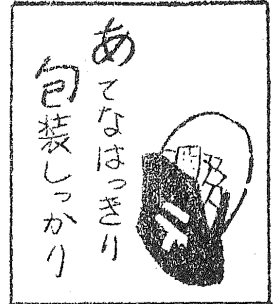 あてなはっきり
包装しっかり
〒